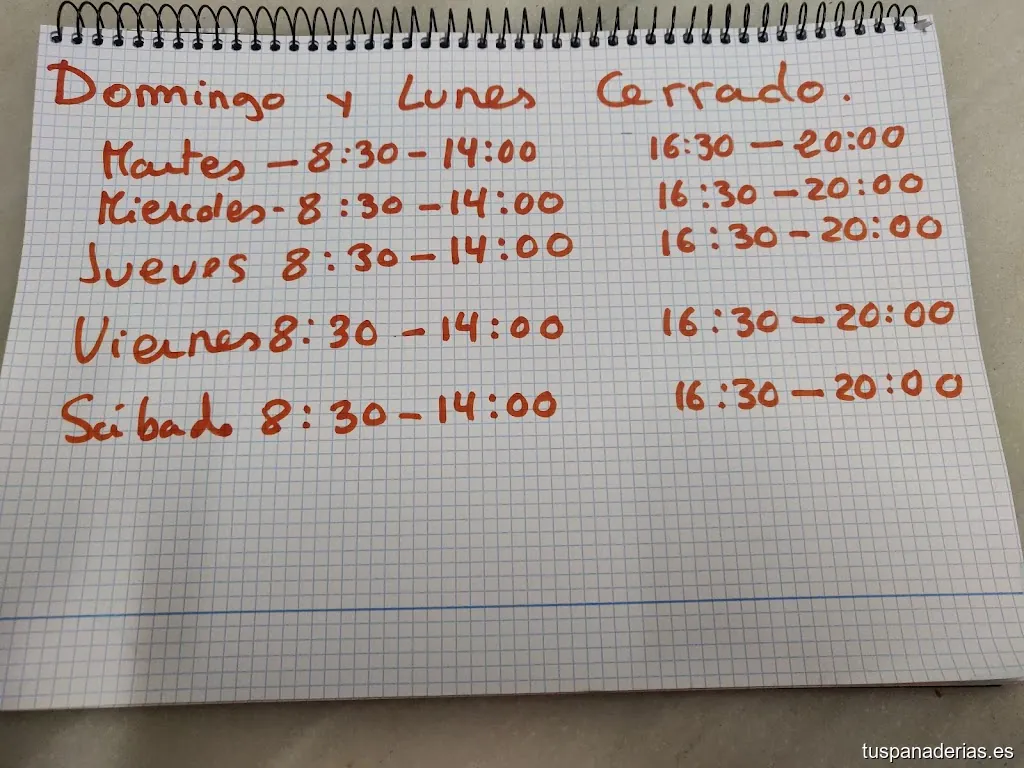 Domingo y Lunes Cerrado.
Martes - 8:30 - 14:00 16:30 - 20:00
Miercoles - 8:30 - 14:00 16:30 - 20:00
Jueves 8:30 - 14:00 16:30 - 20:00
Viernes 8:30 - 14:00 16:30 - 20:00
Sábado 8:30 - 14:00 16:30 - 20:00
tuspanaderias.es